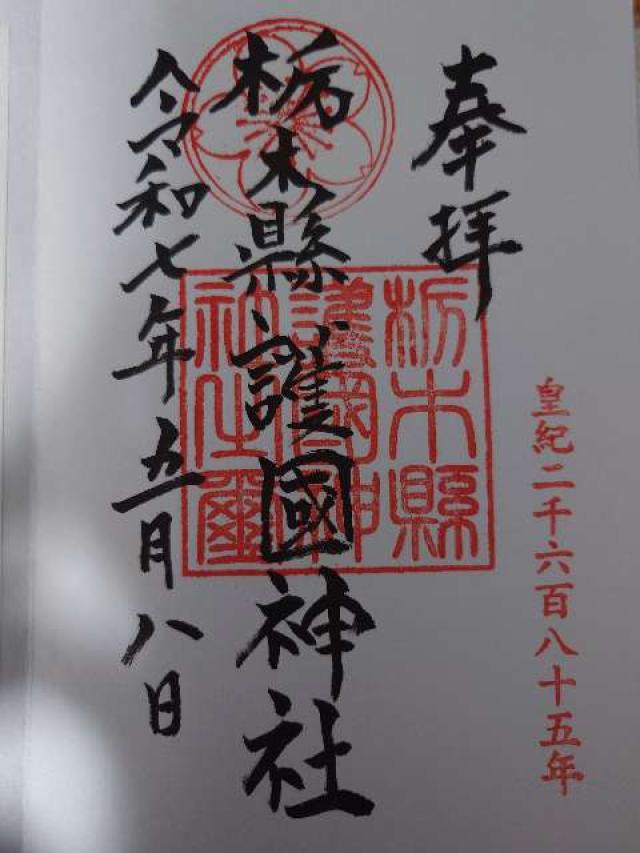 奉拝
皇紀二千六百八十五年
栃木縣護國神社
令和七年五月八日
栃木縣
護國神
社之璽